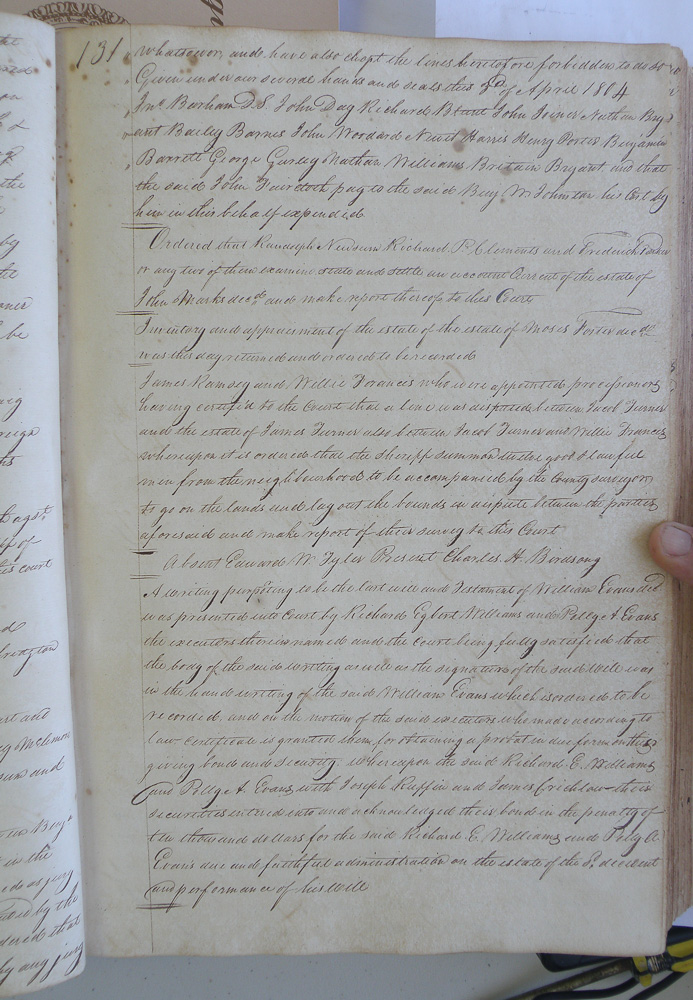 131
whatsoever and have also chopt the lines heretofore forbidden to do so
Given under our several hands and seals this 3d of April 1804
Jno. Barham D.S. John Day Richard John Joiner Nathan Bry-
ant Bailey Barnes John Woodard Newit Harris Henry Porter Benjamin
Barrett George Gurley Nathan Williams Britain Bryant and that
the said John pay to the said Benj W Johnston his Cost by
him in this behalf expended
Ordered that Randolph Newsum Richard P. Clements and Frederick
or any two of them examine state and settle an account Current of the estate of
John Marks decd. and make report thereof to this Court
Inventory and appraisment of the estate of the estate of Moses Foster decd.
was this day returned and ordered to be recorded
James Ramsey and Willie Francis who were appointed processioners
having certified to the Court that a line was disputed between Jacob Turner
and the estate of James Turner also between Jacob Turner and Willie Francis
whereupon it is ordered that the Sheriff summon twelve good & lawful
men from the neighbourhood to be accompanied by the County surveyor
to go on the lands and lay out the bounds in dispute between the parties
aforesaid and make report of their survey to this Court
Absent Edward W. Tyler Present Charles H. Birdsong
A writing purpoting to be the last will and Testament of William Evans decd
was presented into Court by Richard Egbert Williams and Polly A. Evans
the executors therein named and the court being fully satisfied that
the body of the said writing as well as the signature of the said Will was
in the hand writing of the said William Evans which is ordered to be
recorded, and on the motion of the said executors who made according to
law certificate is granted them for obtaining a probat in due form on their
giving bond and security. Whereupon the said Richard E. Williams
and Polly A. Evans with Joseph Ruffin and James Crichlow their
securities entered into and acknowledged their bond in the penalty of
ten thousand dollars for the said Richard E. Williams and Polly A
Evans due and faithful administration on the estate of the sd. decedent
and performance of his Will